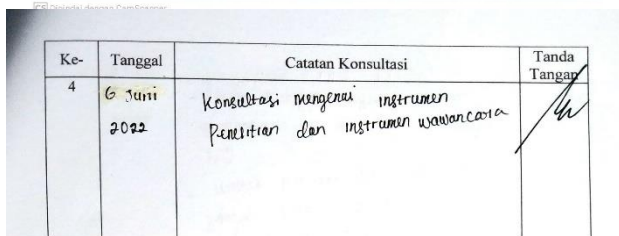 CS Dipindai dengan CamScanner
Ke- Tanggal Catatan Konsultasi Tanda Tangan
4 6 Juni 2022 Konsultasi mengenai instrumen
Penelitian dan instrumen wawancara